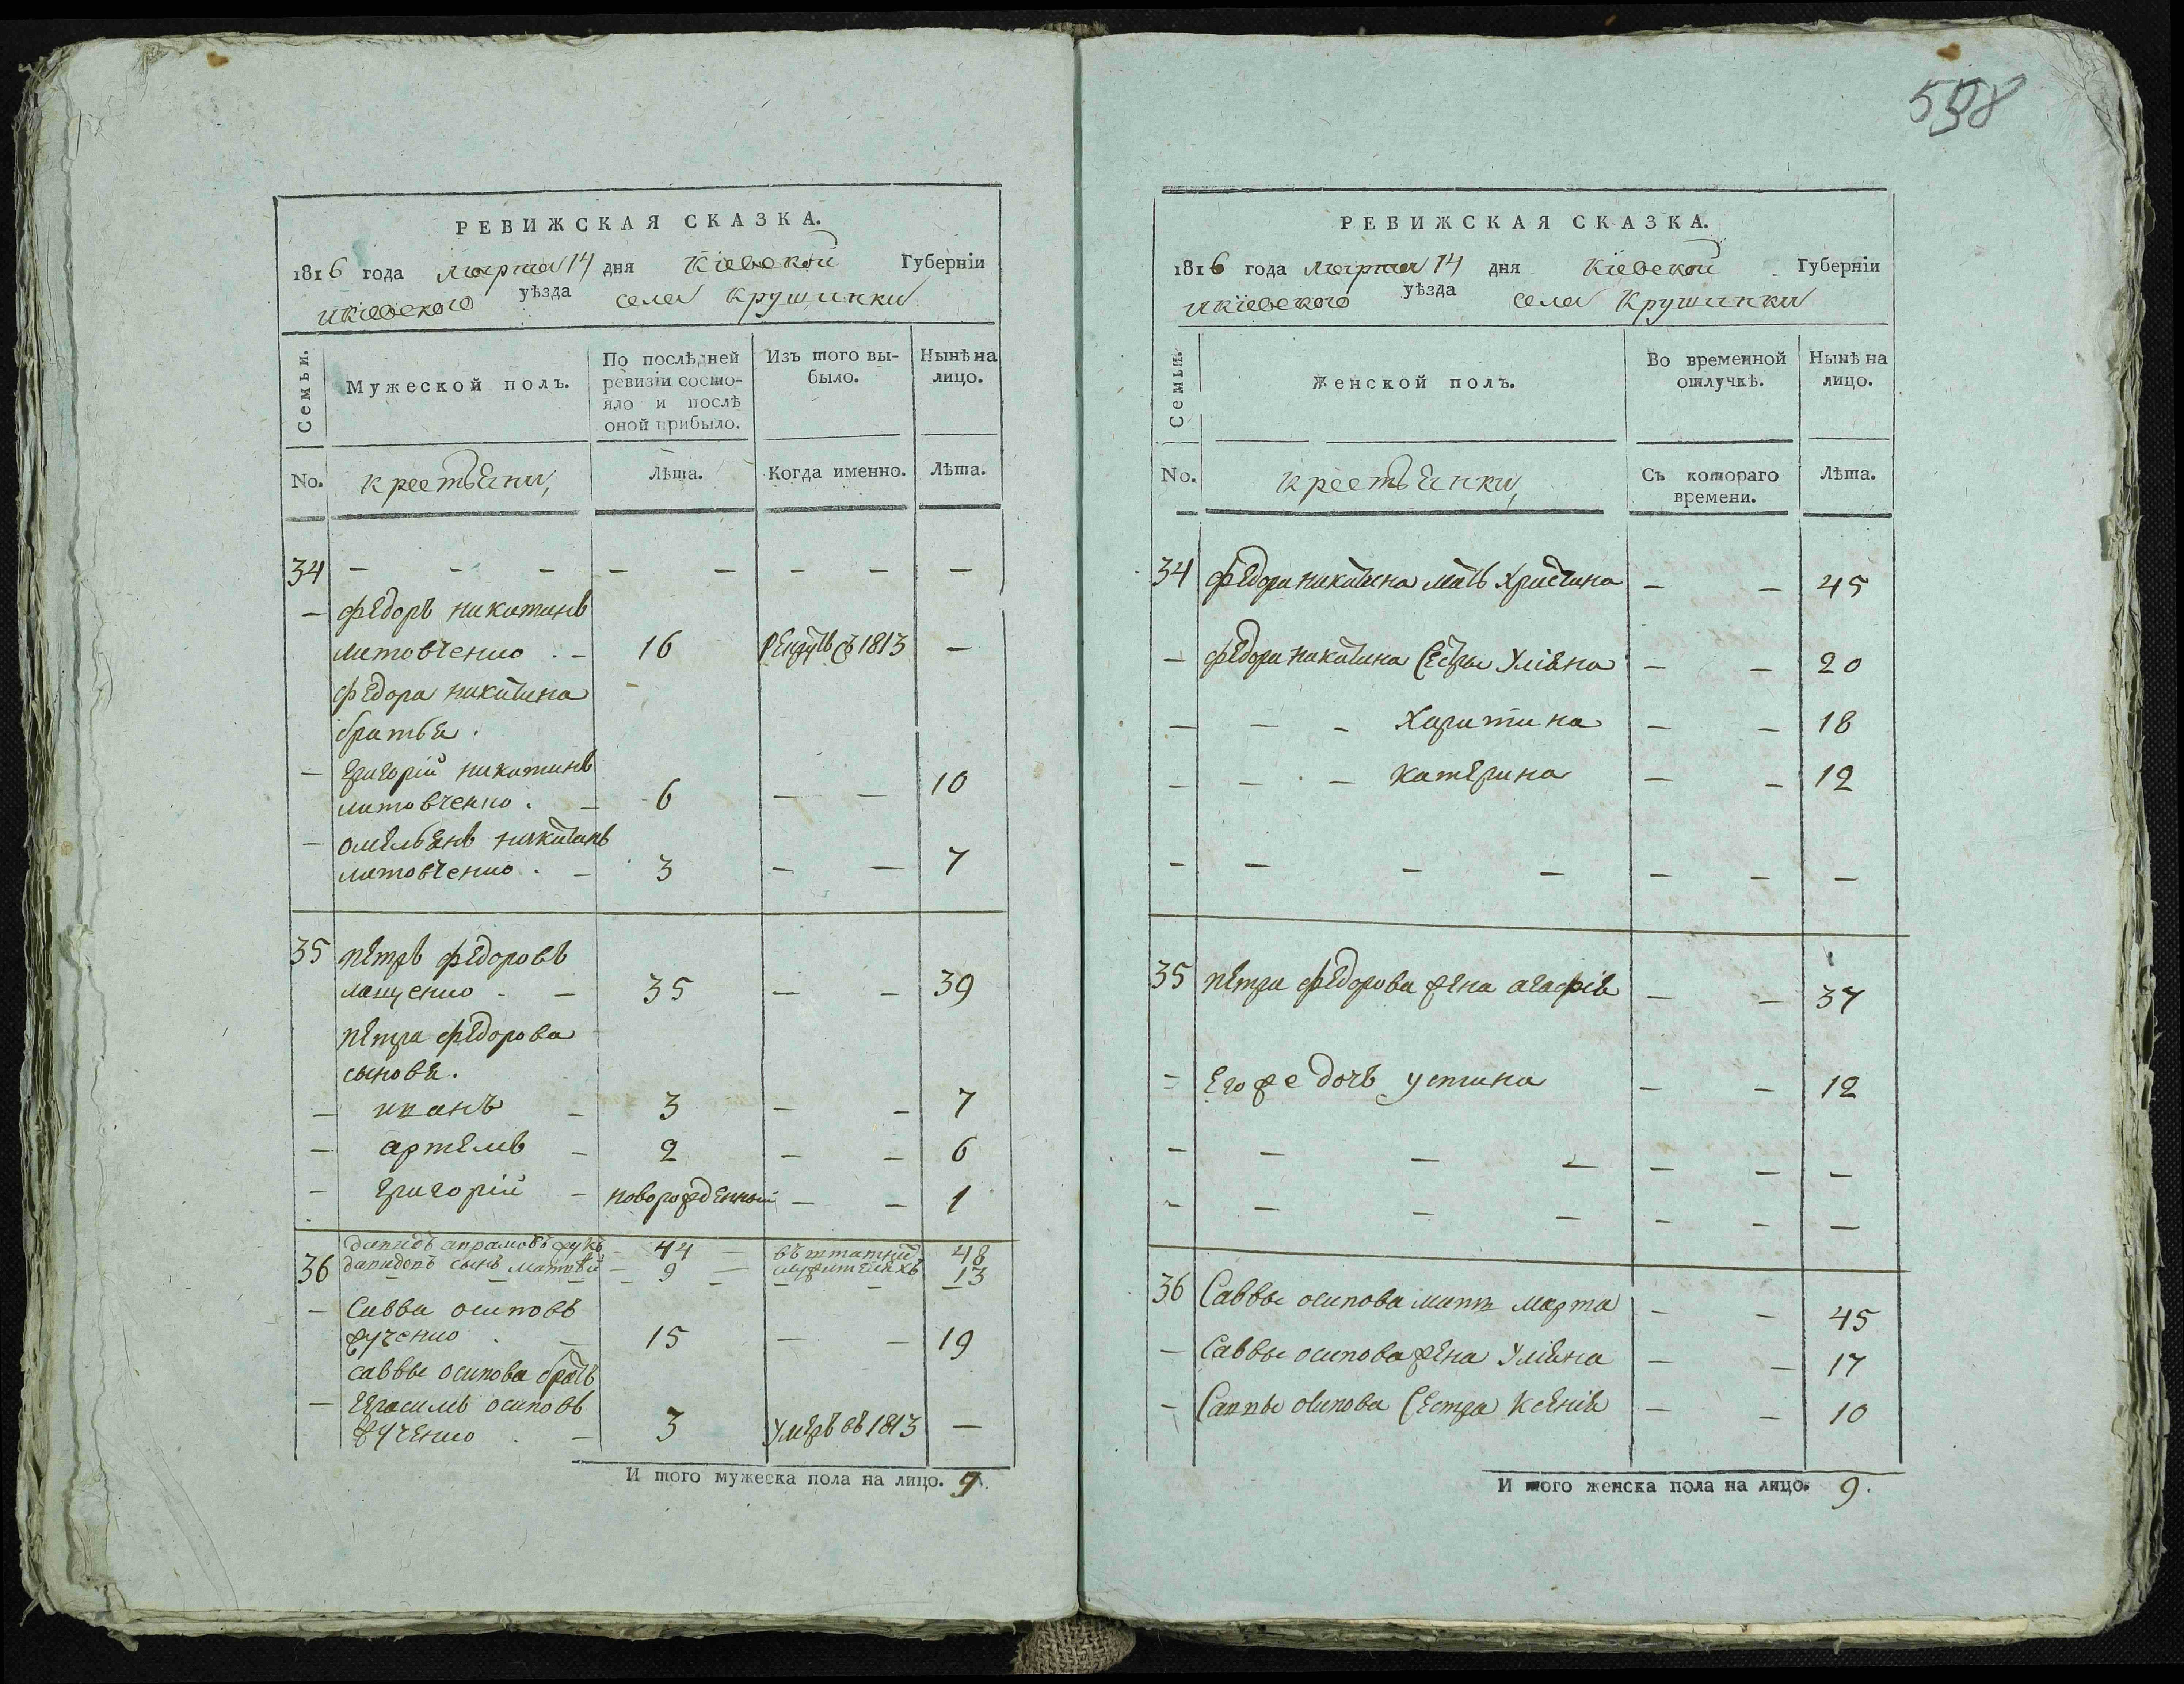 598
РЕВИЖСКАЯ СКАЗКА.
1816 года марта 14 дня Кіевской Губерніи
икіевского уѣзда села Крушинки
Семьи.
Мужеской полъ.
По послѣдней ревизіи состояло и послѣ оной прибыло.
Изъ того выбыло.
Нынѣ на лицо.
No. крестьяни, Лѣта. Когда именно. Лѣта.
34 — — — — — — — —
— федоръ никитинъ
литовченко . — 16 1813 —
федора никитина
братья .
— григорій никитинъ
литовченко . — 6 — — 10
— омельянъ никитинъ
литовченко . — 3 — — 7
35 петръ федоровъ
лащенко - — 35 — — 39
петра федорова
сыновя .
— иванъ — 3 — — 7
— артемъ — 2 — — 6
— григорій — новорожденный — — 1
давидъ аврамовъ жукъ 44 — въ штатній 48
36 давидовъ сынъ матвѣй — 9 — служителяхъ 13
— Савва осиповъ
жученко . — 15 — — 19
саввы осипова братъ
— герасимъ осиповъ
жученко . — 3 умеръ въ 1813 —
И того мужеска пола на лицо. 7.
РЕВИЖСКАЯ СКАЗКА.
1816 года марта 14 дня Кіевской Губерніи
икіевского уѣзда села Крушинки
Семьи.
Женской полъ.
Во временной отлучкѣ.
Нынѣ на лицо.
No. крестьянки, Съ котораго времени. Лѣта.
34 федора никитина мать христина — — 45
— федора никитина сестры Уліяна — — 20
— — - Харитина — — 18
— — - — Катерина — — 12
- — — — — — —
35 петра федорова жена агафія — — 37
= его же дочь устина — — 12
- — — — — — —
- — — — — — —
36 Саввы осипова мать марта — — 45
— Саввы осипова жена Уліяна — — 17
- Саввы осипова сестра Ксенія — — 10
И того женска пола на лицо. 9.